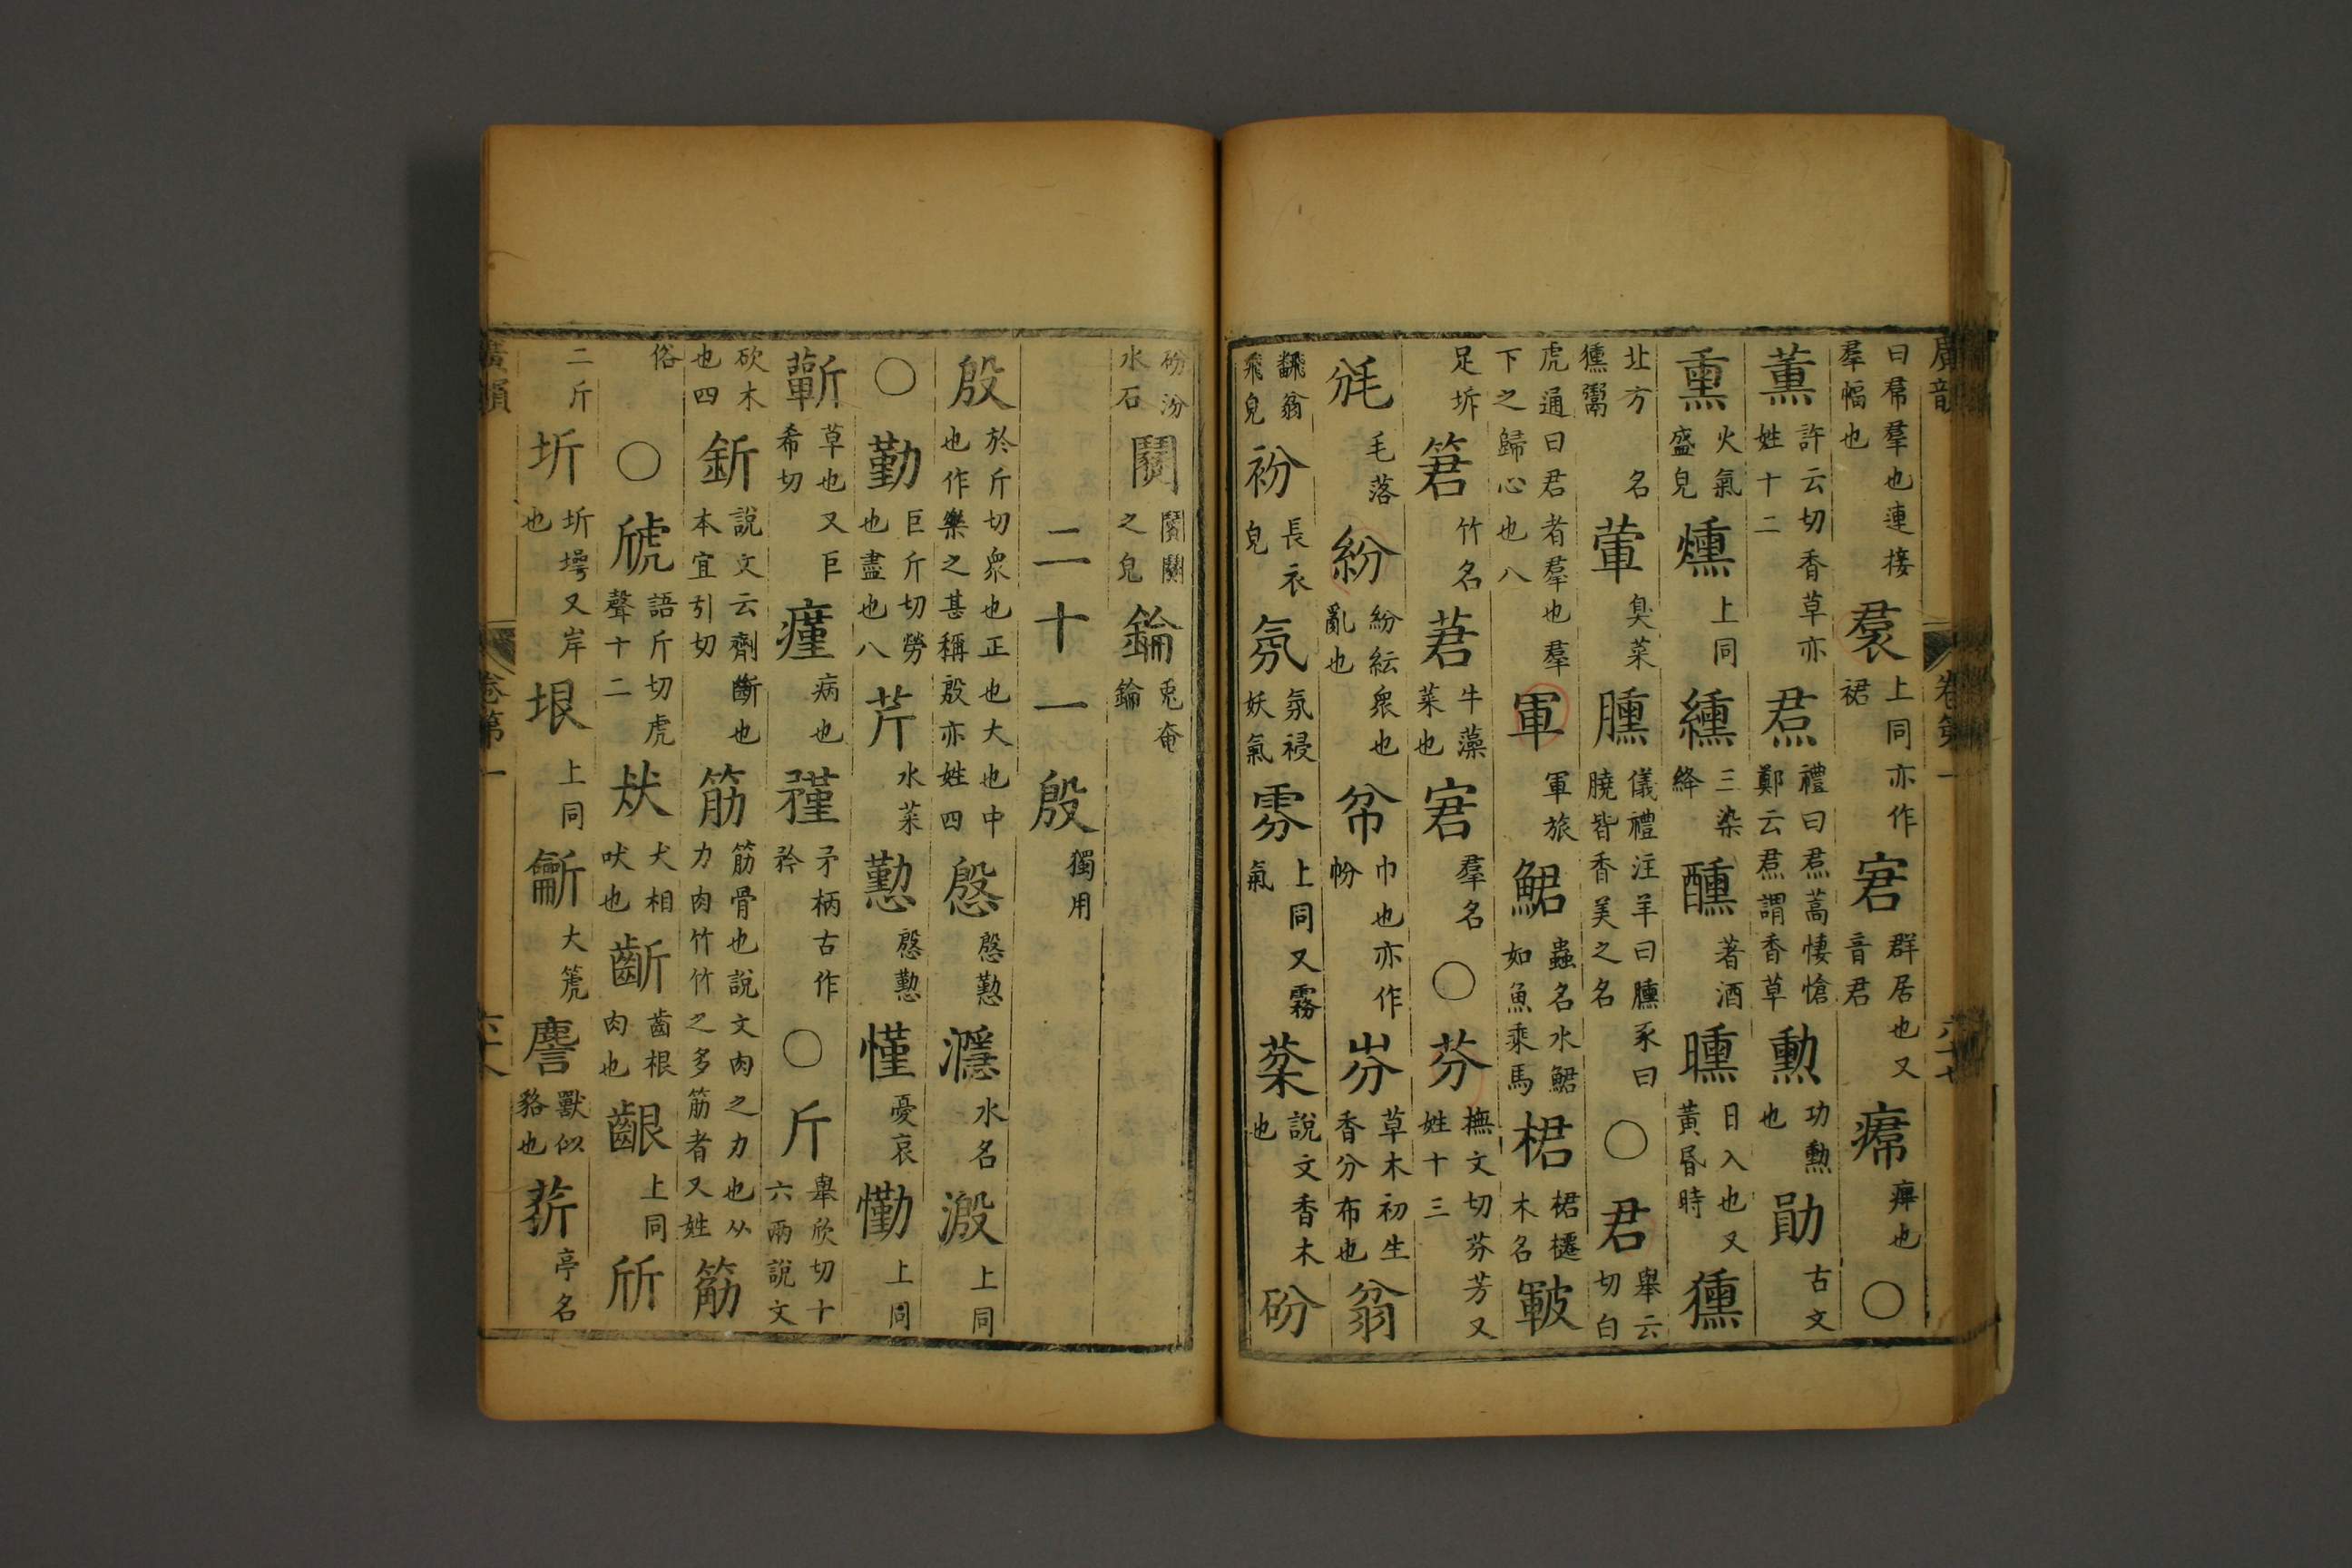 廣韻 卷第一 六十七
曰帬羣也連接羣幅也 裠 上同亦作裙 宭 群居也又音君 㿏 痹也 ○
薰 許云切香草亦姓十二 焄 禮曰焄蒿悽愴鄭云焄謂香草 勲 功勲也 勛 古文
熏 火氣盛皃 燻 上同 纁 三染絳 醺 著酒 曛 日入也又黃昏時 獯
北方名獯鬻 葷 臭菜 臐 儀禮注羊曰臐豕曰膮皆香美之名 ○ 君 舉云切白
虎通曰君者羣也羣下之歸心也八 軍 軍旅 鮶 蟲名水鮶如魚乘馬 桾 桾櫏木名 皸
足坼 䇹 竹名 莙 牛藻菜也 宭 羣名 ○ 芬 撫文切芬芳又姓十三
㲛 毛落 紛 紛紜衆也亂也 帉 巾也亦作帉 岎 草木初生香分布也 翁
飜翁飛皃 衯 長衣皃 氛 氛祲妖氣 雰 上同又霧氣 棻 說文香木也 砏
砏汾水石 䦧 之皃 錀 兎奄錀
二十一 殷 獨用
殷 於斤切衆也正也大也中也作樂之甚稱殷亦姓四 慇 慇懃 濦 水名 溵 上同
○ 勤 巨斤切勞也盡也八 芹 水菜 懃 慇懃 慬 憂哀 懄 上同
蘄 草也又巨希切 瘽 病也 矜 矛柄古作矜 ○ 斤 舉欣切十六兩說文
斫木也四 釿 說文云劑斷也本宜引切 筋 筋骨也說文肉之力也从力肉竹竹之多筋者又姓 筯
俗 ○ 虓 語斤切虎聲十二 㹜 犬相吠也 齗 齒根肉也 齦 上同 斦
二斤 圻 圻堮又岸也 垠 上同 龂 大箎 䜾 獸似貉也 菥 亭名
廣韻 卷第一 六十八